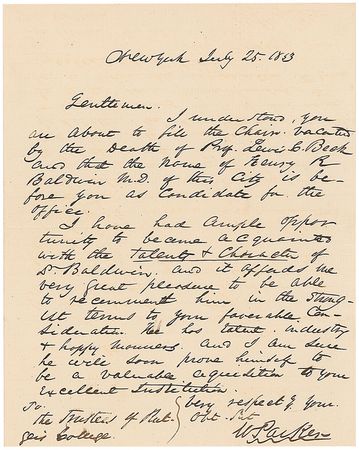 New York July 25. 1853
Gentlemen.
I understand, you
are about to fill the Chair vacated
by the Death of Prof. Lewis C. Beck
and that the Name of Henry R
Baldwin M.D. of this City is be
fore you as Candidate for the
Office.
I have had ample oppor
tunity to become acquainted
with the Talents & Character of
Dr Baldwin. and it affords me
very great pleasure to be able
to recommend him in the Strong-
est terms to your favorable Con-
sideration. He has talent. industry
& happy manners. and I am sure
he will soon prove himself to
be a valuable acquisition to your
Excellent Institution.
To.
The Trustees of Rut-
gers College.
Very respectfy. Your.
Obt. Svt
W Parker